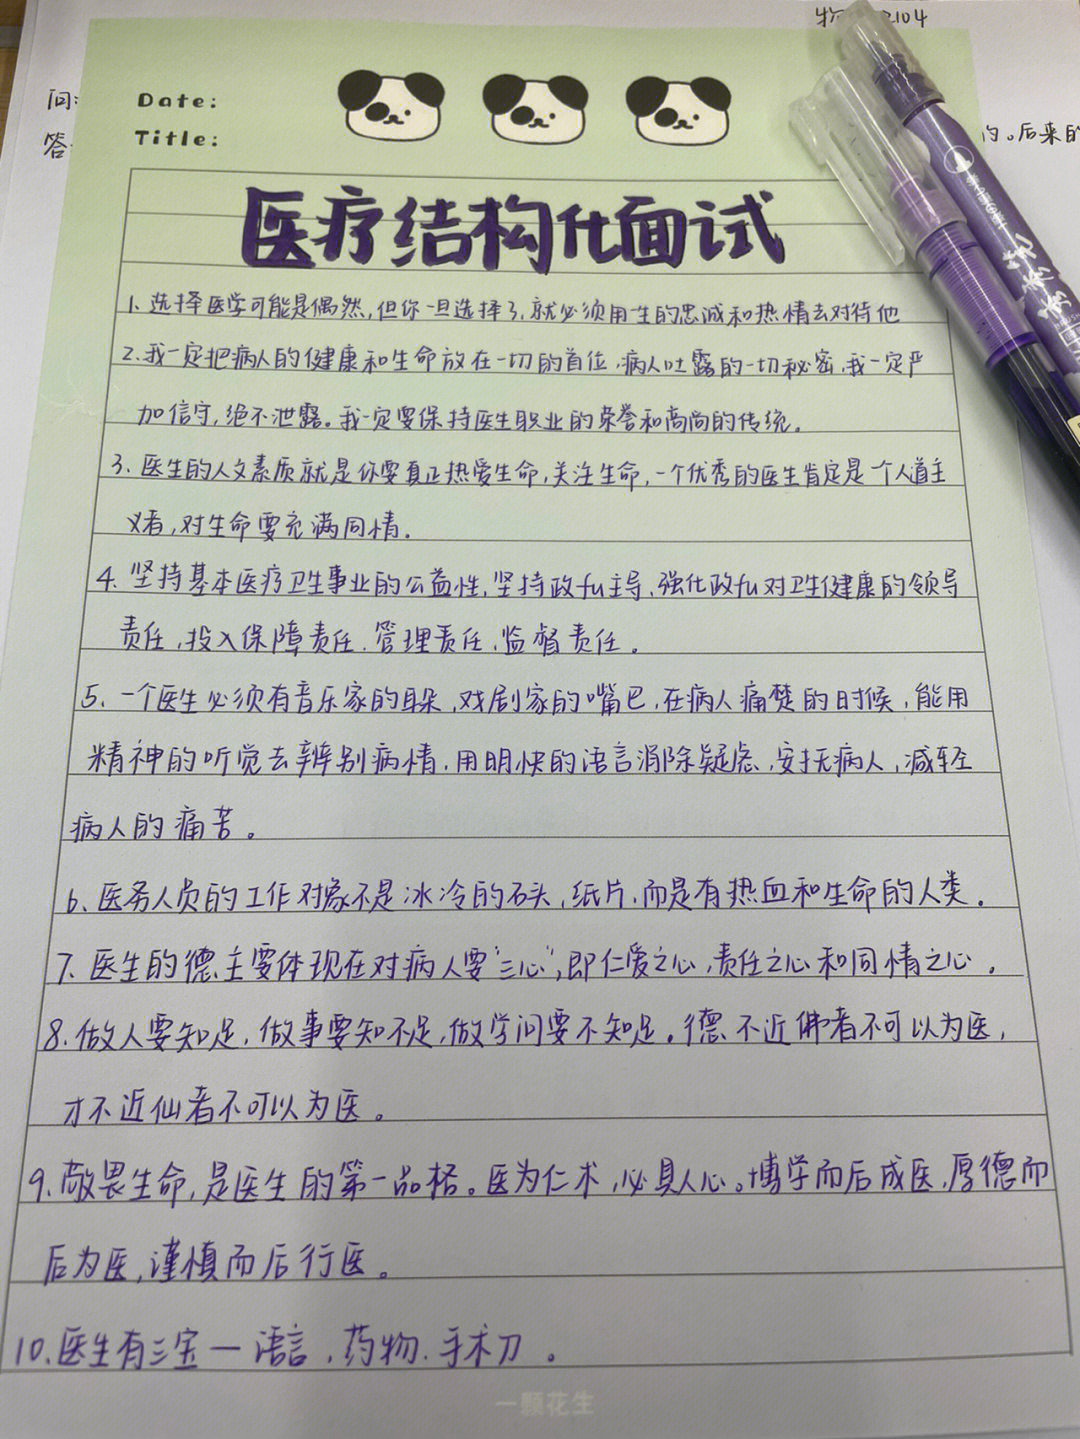 2104
问:
答
的。后来的
Date:
Title:
医疗结构化面试
1、选择医学可能是偶然,但你一旦选择了,就必须用一生的忠诚和热情去对待他
2、我一定把病人的健康和生命放在一切的首位,病人吐露的一切秘密,我一定严
加信守,绝不泄露。我一定要保持医生职业的荣誉和高尚的传统。
3、医生的人文素质就是你要真正热爱生命,关注生命,一个优秀的医生肯定是一个人道主
义者,对生命要充满同情。
4、坚持基本医疗卫生事业的公益性,坚持政fu主导、强化政fu对卫生健康的领导
责任,投入保障责任、管理责任,监督责任。
5、一个医生必须有音乐家的耳朵,戏剧家的嘴巴,在病人痛楚的时候,能用
精神的听觉去辨别病情,用明快的语言消除疑虑,安抚病人,减轻
病人的痛苦。
6、医务人员的工作对象不是冰冷的石头,纸片,而是有热血和生命的人类。
7、医生的德主要体现在对病人要"三心",即仁爱之心,责任之心和同情之心。
8、做人要知足,做事要知不足,做学问要不知足。德不近佛者不可以为医,
才不近仙者不可以为医。
9、敬畏生命,是医生的第一品格。医为仁术,必具人心。博学而后成医,厚德而
后为医,谨慎而后行医。
10、医生有三宝一语言,药物、手术刀。
一颗花生